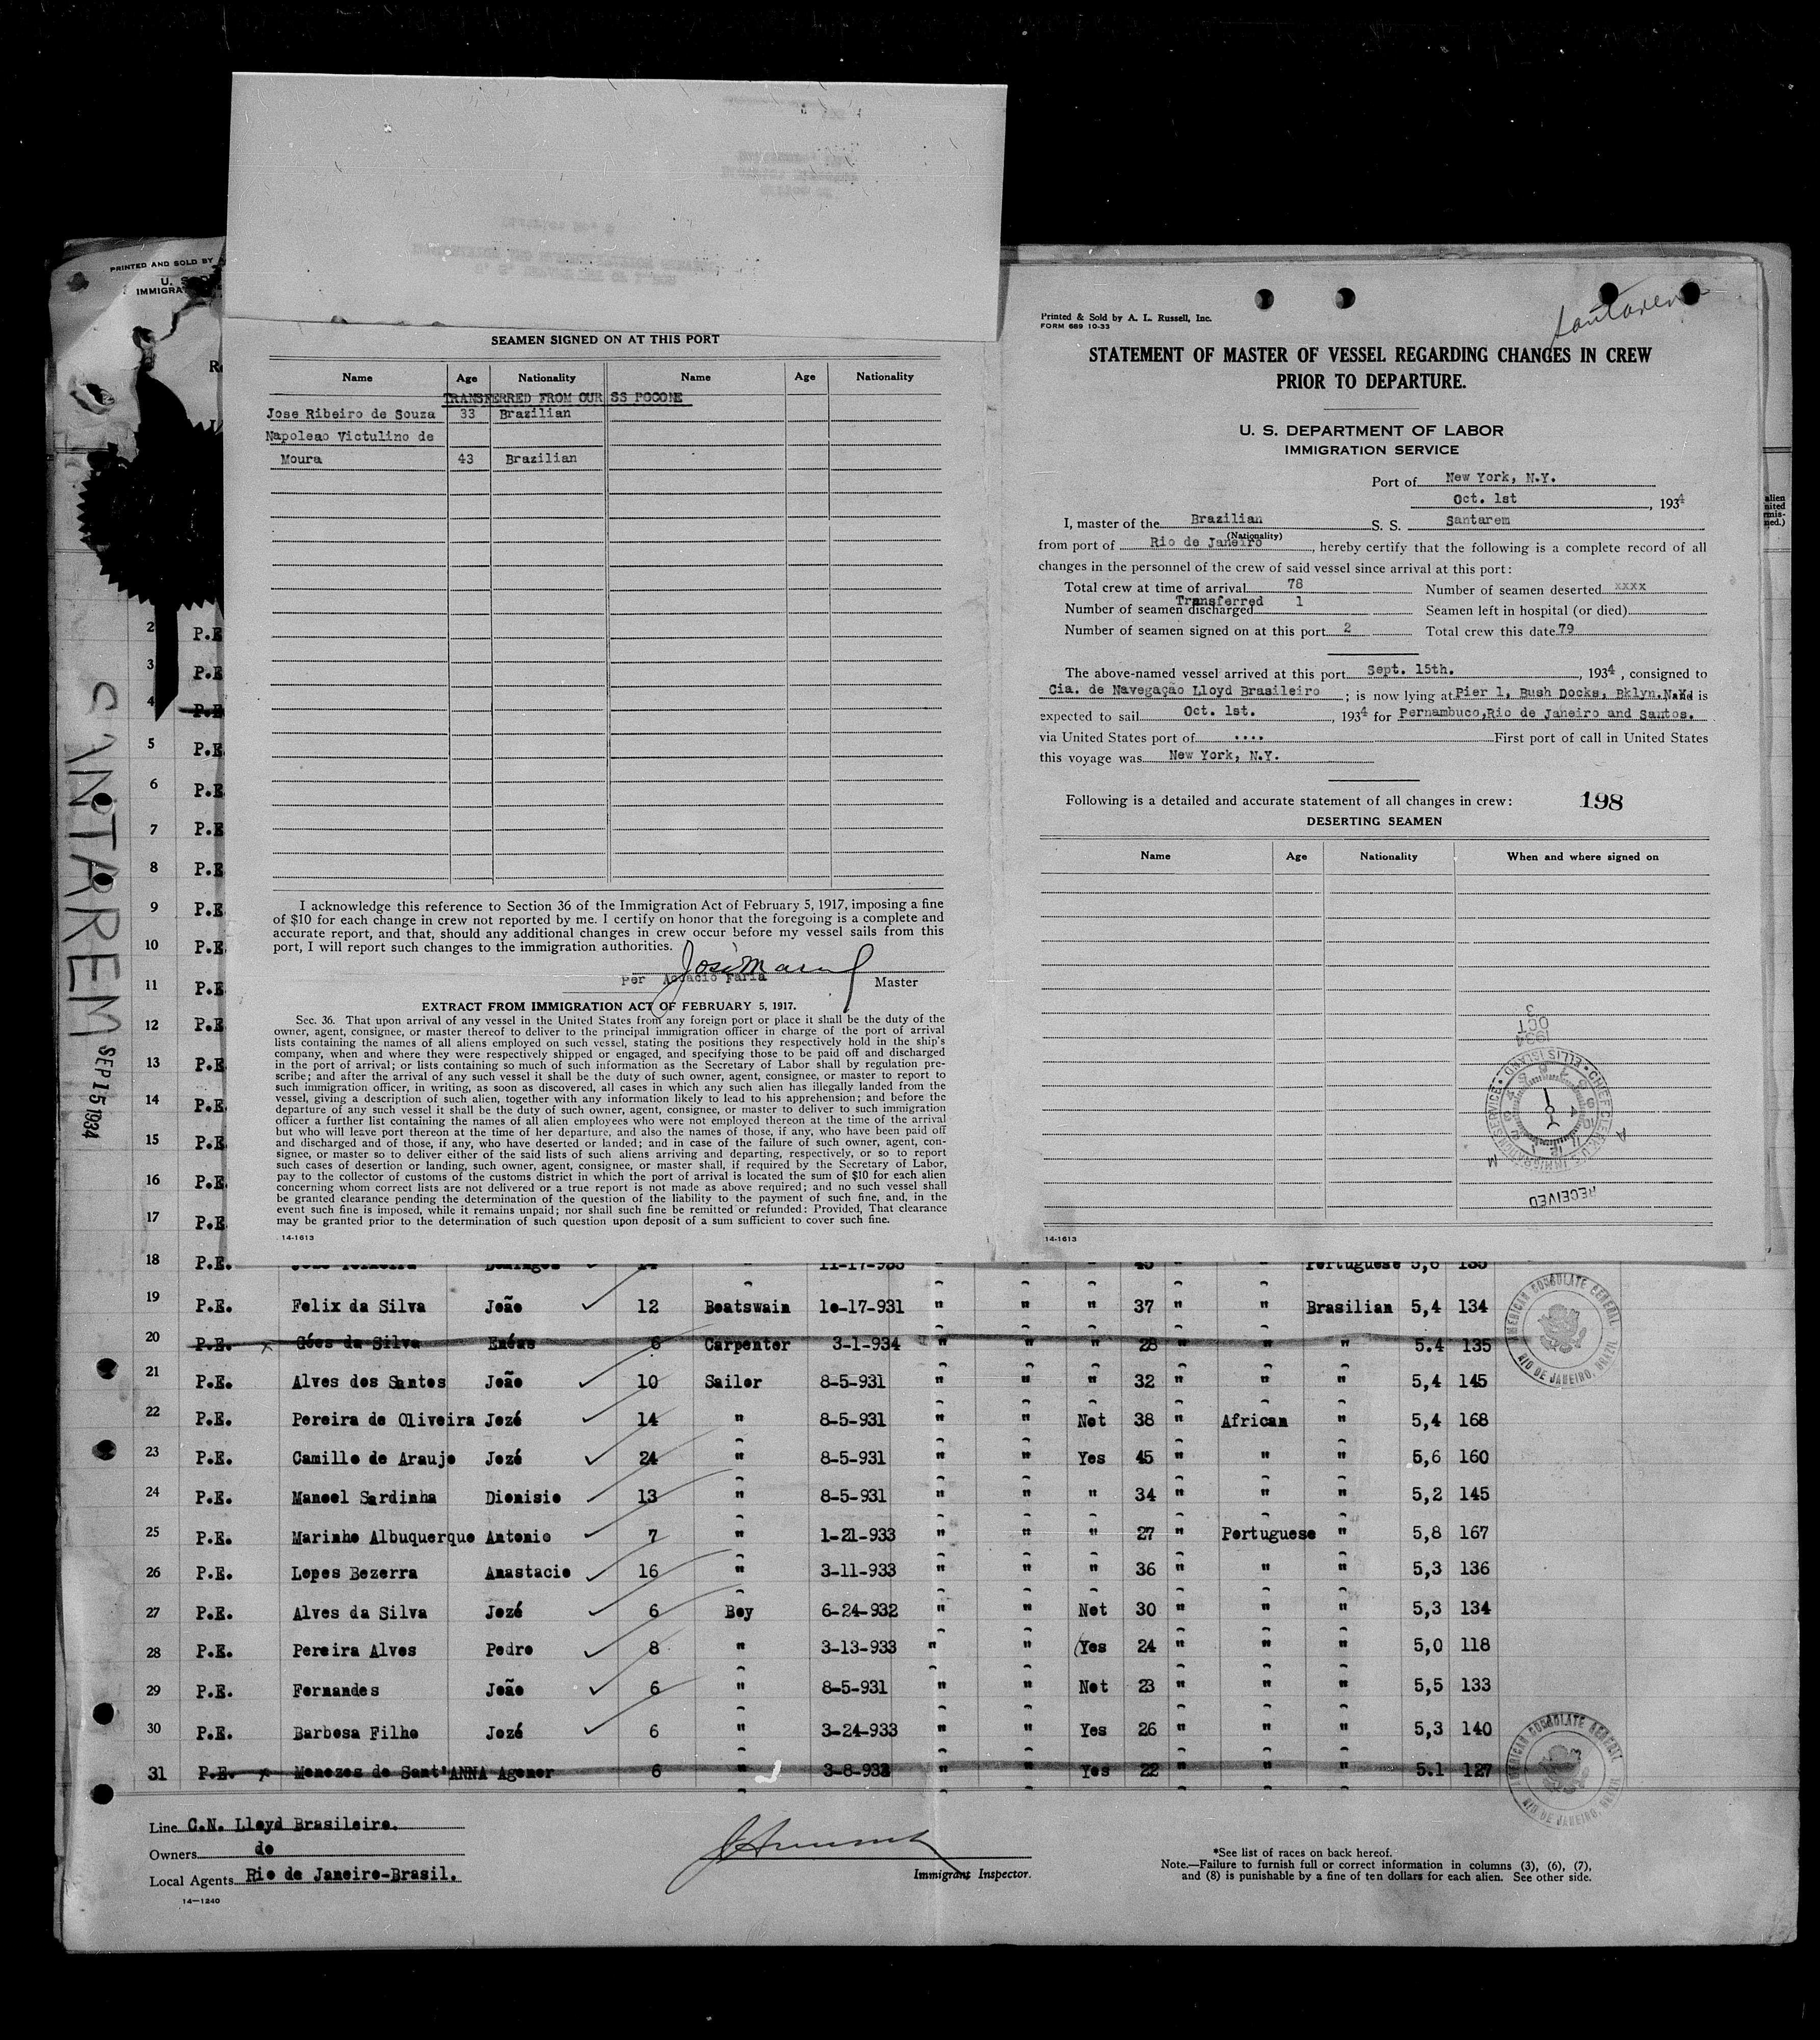 PRINTED AND SOLD BY
U. S. DE
IMMIGRA
SANTAREM SEP 15 1934
SEAMEN SIGNED ON AT THIS PORT
Name Age Nationality Name Age Nationality
TRANSFERRED FROM OUR SS POCONE
Jose Ribeiro de Souza 33 Brazilian
Napoleao Victulino de
Moura 43 Brazilian
I acknowledge this reference to Section 36 of the Immigration Act of February 5, 1917, imposing a fine
of $10 for each change in crew not reported by me. I certify on honor that the foregoing is a complete and
accurate report, and that, should any additional changes in crew occur before my vessel sails from this
port, I will report such changes to the immigration authorities.
Per Accacio Faria Master
EXTRACT FROM IMMIGRATION ACT OF FEBRUARY 5, 1917.
Sec. 36. That upon arrival of any vessel in the United States from any foreign port or place it shall be the duty of the
owner, agent, consignee, or master thereof to deliver to the principal immigration officer in charge of the port of arrival
lists containing the names of all aliens employed on such vessel, stating the positions they respectively hold in the ship's
company, when and where they were respectively shipped or engaged, and specifying those to be paid off and discharged
in the port of arrival; or lists containing so much of such information as the Secretary of Labor shall by regulation pre-
scribe; and after the arrival of any such vessel it shall be the duty of such owner, agent, consignee, or master to report to
such immigration officer, in writing, as soon as discovered, all cases in which any such alien has illegally landed from the
vessel, giving a description of such alien, together with any information likely to lead to his apprehension; and before the
departure of any such vessel it shall be the duty of such owner, agent, consignee, or master to deliver to such immigration
officer a further list containing the names of all alien employees who were not employed thereon at the time of the arrival
but who will leave port thereon at the time of her departure, and also the names of those, if any, who have been paid off
and discharged and of those, if any, who have deserted or landed; and in case of the failure of such owner, agent, con-
signee, or master so to deliver either of the said lists of such aliens arriving and departing, respectively, or so to report
such cases of desertion or landing, such owner, agent, consignee, or master shall, if required by the Secretary of Labor,
pay to the collector of customs of the customs district in which the port of arrival is located the sum of $10 for each alien
concerning whom correct lists are not delivered or a true report is not made as above required; and no such vessel shall
be granted clearance pending the determination of the question of the liability to the payment of such fine, and, in the
event such fine is imposed, while it remains unpaid; nor shall such fine be remitted or refunded: Provided, That clearance
may be granted prior to the determination of such question upon deposit of a sum sufficient to cover such fine.
14-1613
Santarem
Printed & Sold by A. L. Russell, Inc.
FORM 689 10-33
STATEMENT OF MASTER OF VESSEL REGARDING CHANGES IN CREW
PRIOR TO DEPARTURE.
U. S. DEPARTMENT OF LABOR
IMMIGRATION SERVICE
Port of New York, N.Y.
Oct. 1st, 1934
I, master of the Brazilian S. S. Santarem
(Nationality)
from port of Rio de Janeiro, hereby certify that the following is a complete record of all
changes in the personnel of the crew of said vessel since arrival at this port:
Total crew at time of arrival 78 Number of seamen deserted xxxx
Transferred
Number of seamen discharged 1 Seamen left in hospital (or died)
Number of seamen signed on at this port 2 Total crew this date 79
The above-named vessel arrived at this port Sept. 15th., 1934, consigned to
Cia. de Navegação Lloyd Brasileiro; is now lying at Pier 1, Bush Docks, Bklyn.N.Y. and is
expected to sail Oct. 1st., 1934 for Pernambuco,Rio de Janeiro and Santos.
via United States port of .... First port of call in United States
this voyage was New York, N.Y.
Following is a detailed and accurate statement of all changes in crew: 198
DESERTING SEAMEN
Name Age Nationality When and where signed on
1934
OCT
3
CHIEF CLERK U.S. IMMIGRATION SERVICE ELLIS ISLAND
A M
RECEIVED
14-1613
alien
nited
rmis-
ned.)
2 P.E
3 P.E
4 P.E
5 P.E
6 P.E
7 P.E
8 P.E
9 P.E
10 P.E
11 P.E
12 P.E
13 P.E
14 P.E
15 P.E
16 P.E
17 P.E
18 P.E. Domingos 14 " 11-17-933 " " " 45 " " Portuguese 5,6
19 P.E. Felix da Silva João 12 Boatswain 10-17-931 " " " 37 " " Brasilian 5,4 134
20 P.E. x Góes da Silva Enéas 6 Carpenter 3-1-934 " " " 28 " " " 5.4 135
21 P.E. Alves dos Santos João 10 Sailor 8-5-931 " " " 32 " " " 5,4 145
22 P.E. Pereira de Oliveira José 14 " 8-5-931 " " Not 38 " African " 5,4 168
23 P.E. Camillo de Araujo José 24 " 8-5-931 " " Yes 45 " " " 5,6 160
24 P.E. Manoel Sardinha Dionisio 13 " 8-5-931 " " " 34 " " " 5,2 145
25 P.E. Marinho Albuquerque Antonio 7 " 1-21-933 " " " 27 " Portuguese " 5,8 167
26 P.E. Lopes Bezerra Anastacio 16 " 3-11-933 " " " 36 " " " 5,3 136
27 P.E. Alves da Silva José 6 Boy 6-24-932 " " Not 30 " " " 5,3 134
28 P.E. Pereira Alves Pedro 8 " 3-13-933 " " Yes 24 " " " 5,0 118
29 P.E. Fernandes João 6 " 8-5-931 " " Not 23 " " " 5,5 133
30 P.E. Barbosa Filho José 6 " 3-24-933 " " Yes 26 " " " 5,3 140
31 P.E. x Menezes de Sant'ANNA Agenor 6 " 3-8-933 " " Yes 22 " " " 5.1 127
AMERICAN CONSULATE GENERAL RIO DE JANEIRO, BRAZIL
AMERICAN CONSULATE GENERAL RIO DE JANEIRO, BRAZIL
Line C.N. Lloyd Brasileiro.
Owners do
Local Agents Rio de Janeiro-Brasil.
14-1240
Immigrant Inspector.
*See list of races on back hereof.
Note.—Failure to furnish full or correct information in columns (3), (6), (7),
and (8) is punishable by a fine of ten dollars for each alien. See other side.